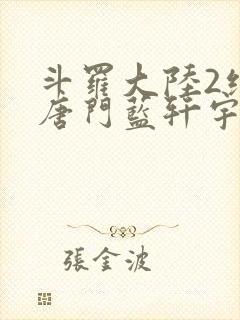 斗羅大陸2絕
唐門藍軒宇
張金波